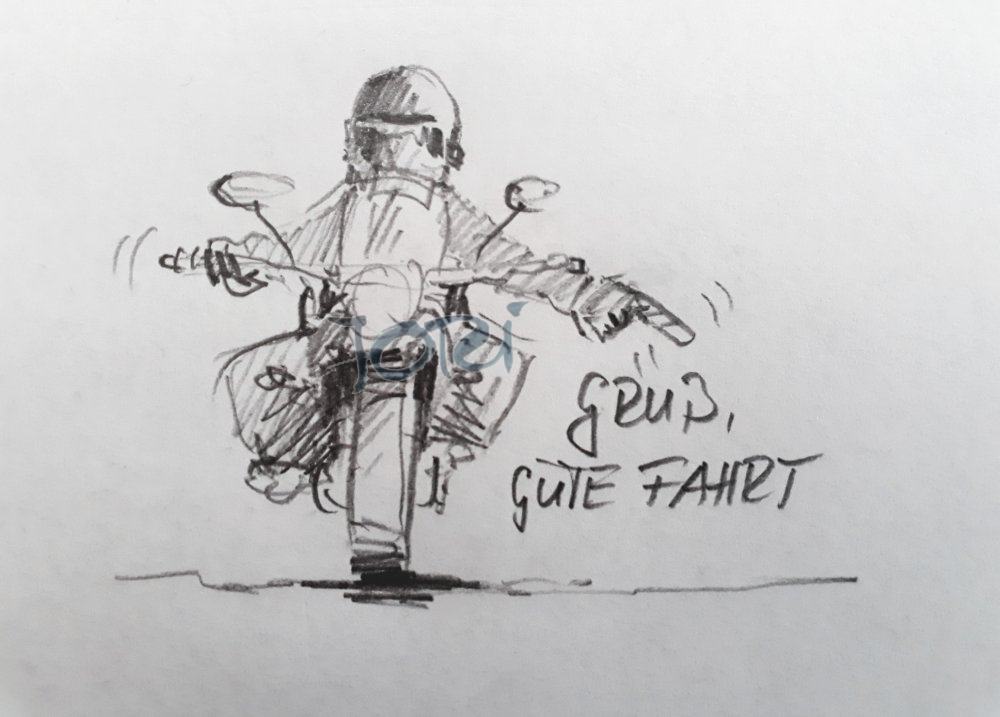 JOREi
GRUß,
GUTE FAHRT